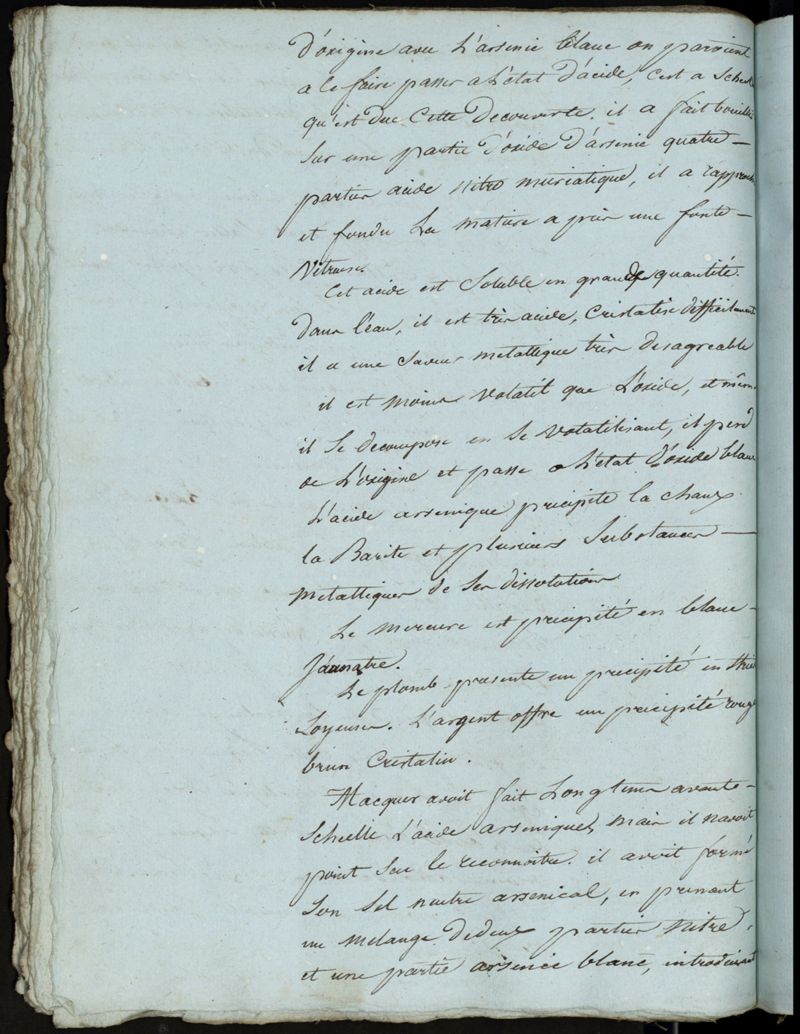 d'oxigine avec L'arsenic blanc on parvient
a le faire passer a L'etat D'acide, c'est a Scheele
qu'est Due Cette Decouverte. il a fait bouillir
Sur une partie D'oxide D'arsenic quatre —
parties acide Nitro muriatique, il a rapproché
et fondu La matiere a pris une fonte —
Vitreuse.
Cet acide est Soluble en grande quantité
Dans L'eau, il est très acide, Cristalise difficilement
il a une Saveur metallique très desagreable
il est moins Volatil que L'oxide, et même
il Se decompose en Se Volatilisant, il perd
de L'oxigine et passe a L'etat D'oxide blanc
L'acide arsenique precipite la chaux
la Barite et plusieurs Substances —
metalliques de Ses dissolutions
Le mercure est precipité en blanc —
Jaunatre.
Le plomb presente un precipité en Stries
Soyeuses. L'argent offre un precipité rouge
brun Cristalin.
Macquer avoit fait Longtems avant —
Scheelle L'acide arsenique, mais il n'avoit
point Scu le reconnoitre. il avoit formé
Son Sel neutre arsenical, en prenant
un melange De deux parties Nitre,
et une partie arsenic blanc, introduisant